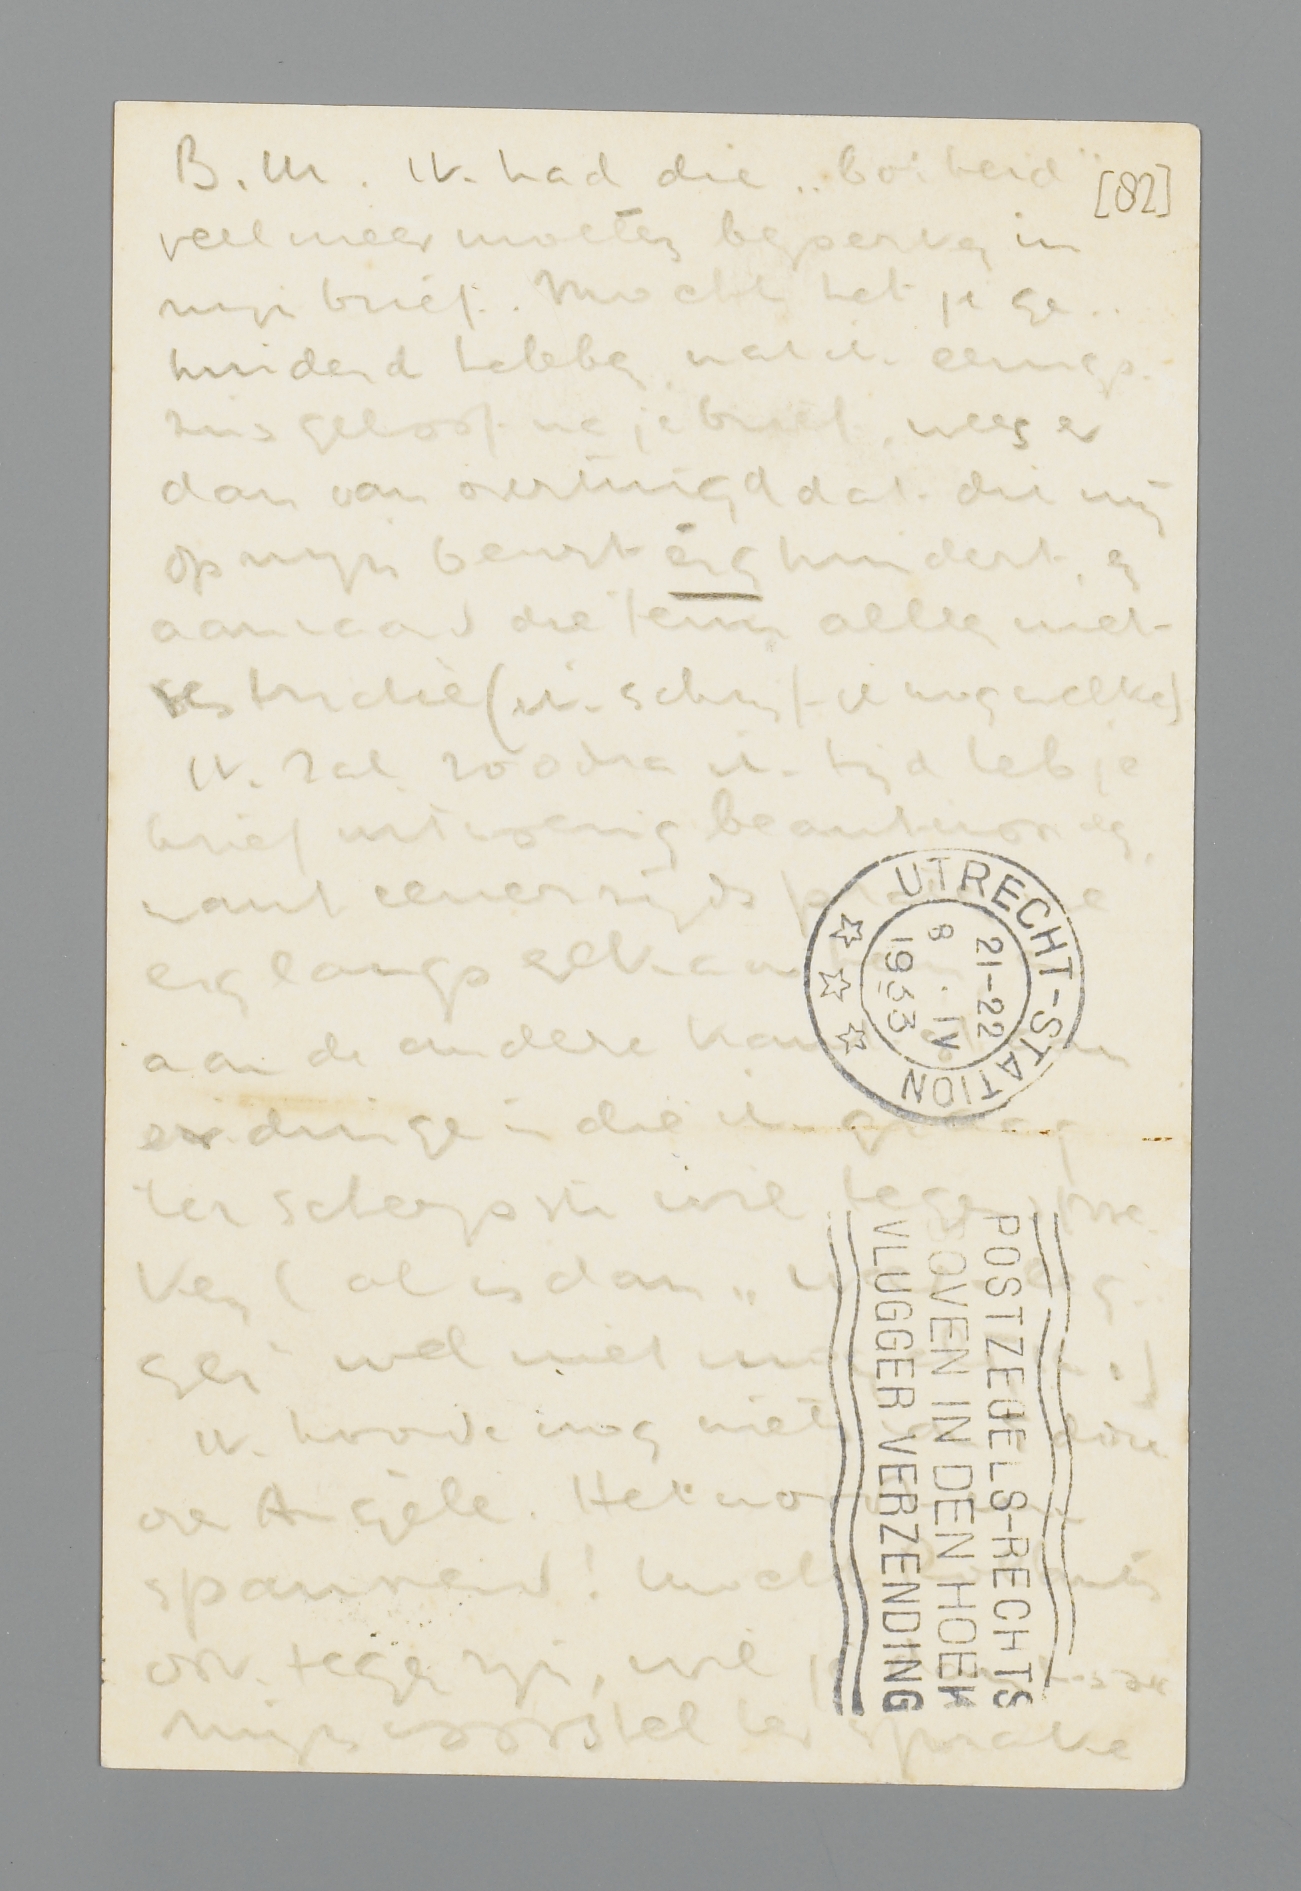 B.M. Ik had die „boîheid"
[82]
veel meer moeten beperken in
mijn brief. Mocht het je ge-
hinderd hebben, wat ik eenigs-
zins geloof na je brief, wees er
dan van overtuigd dat die mij
op mijn beurt érg hindert, en
aanvaard die term alleen met
restrictie (ik schrijf je nog welke)
Ik zal zoodra ik tijd heb je
brief uitvoerig beantwoorden,
want eenerzijds
erg langs elkaar
aan de andere kant
er dingen in die ik
ter scherpste wil tegenspre-
ken (al is dan
gen" wel niet
Ik hoorde nog niet door
over Angèle. Het wordt
spannend! Mocht
ook tegen zijn, wil je
mijn voorstel ter sprake
UTRECHT-STATION
21-22
8.IV
1933
POSTZEGELS-RECHTS
BOVEN IN DEN HOEK
VLUGGER VERZENDING